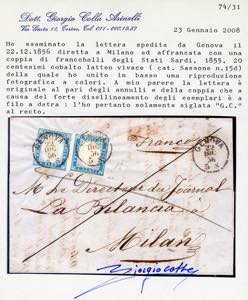 74/31
Dott. Giorgio Colla Asinelli
23 Gennaio 2008
Ho esaminato la lettera spedita da Genova il
22.12.1856 diretta a Milano ed affrancata con una
coppia di francobolli degli Stati Sardi, 1855, 20
centesimi cobalto latteo vivace ( cat. Sassone n.15d)
della quale ho unito in basso una riproduzione
fotografica a colori. A mio parere la lettera è
originale al pari degli annulli e della coppia che a
causa del forte disallineamento degli esemplari è a
filo a detra : l'ho pertanto solamente siglata "G.C."
al recto.
Franco
GENOVA
22
DIC
56
A M. le Directeur du Journal
La Bilancia à
Milan